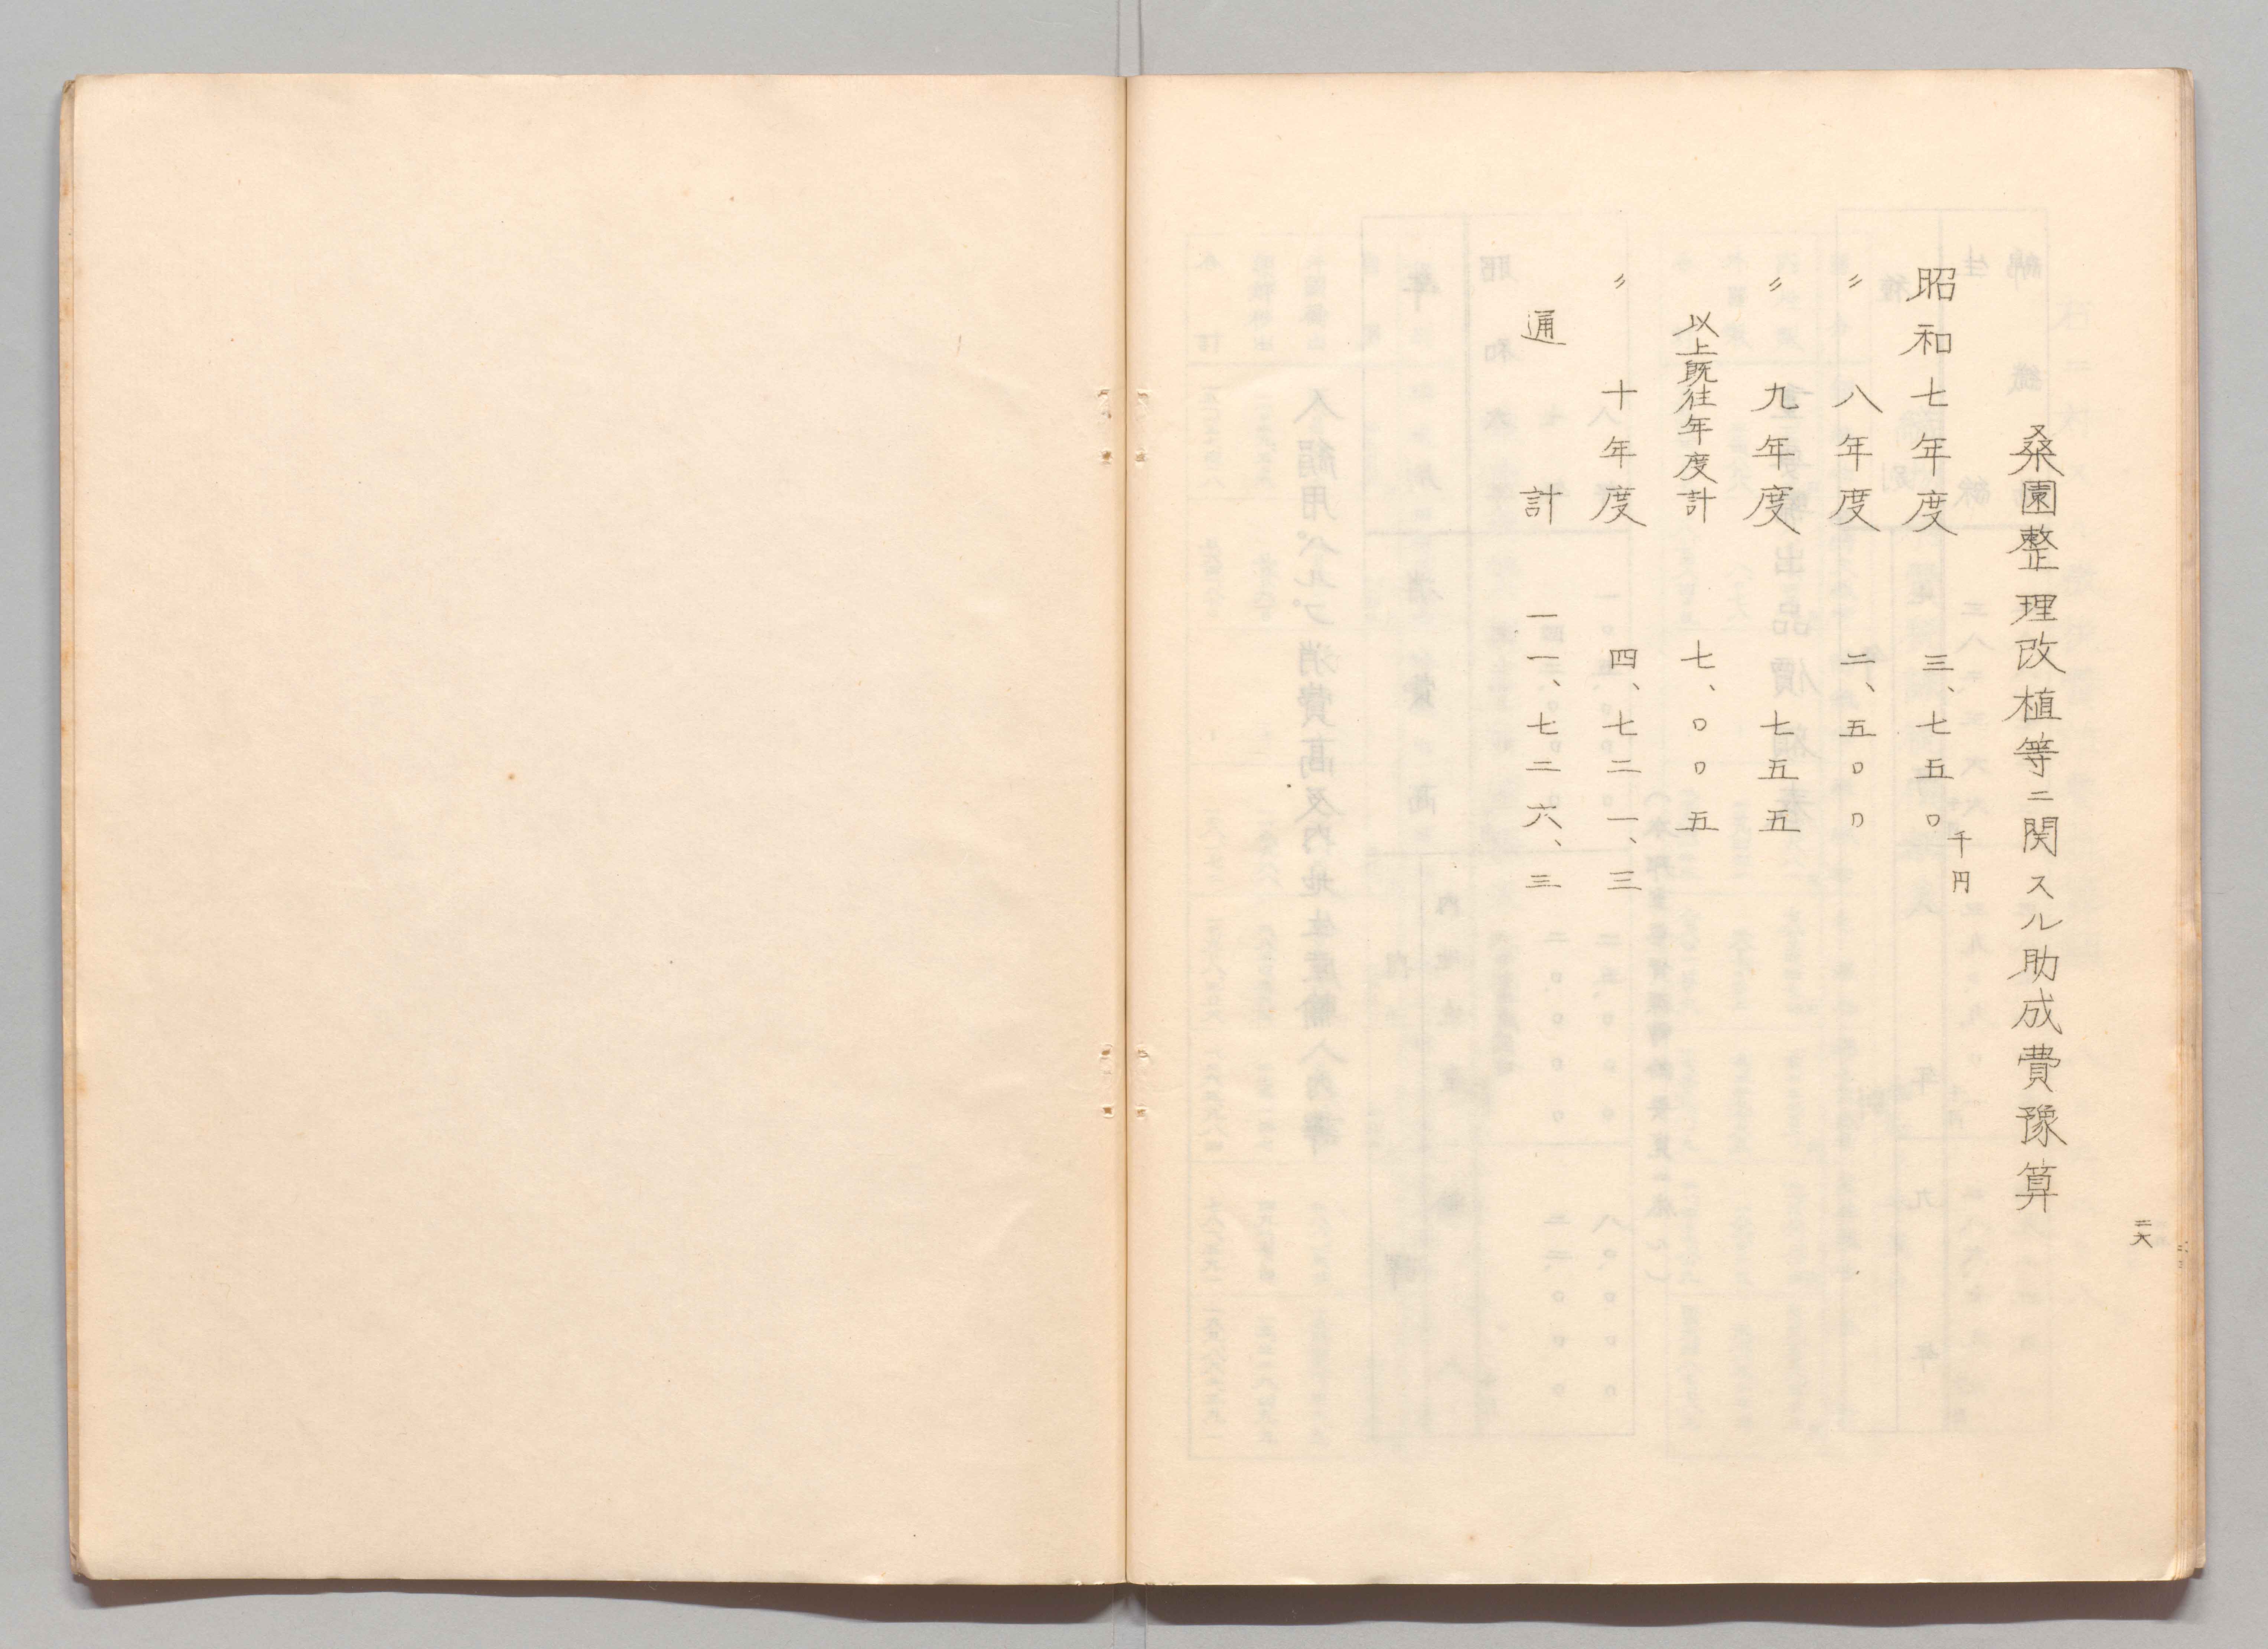 桑園整理改植等ニ関スル助成費豫算
昭和七年度 三、七五〇千円
〃 八年度 二、五〇〇
〃 九年度 七五五
以上既往年度計 七、〇〇五
〃 十年度 四、七二一、三
通計 一一、七二六、三
二六